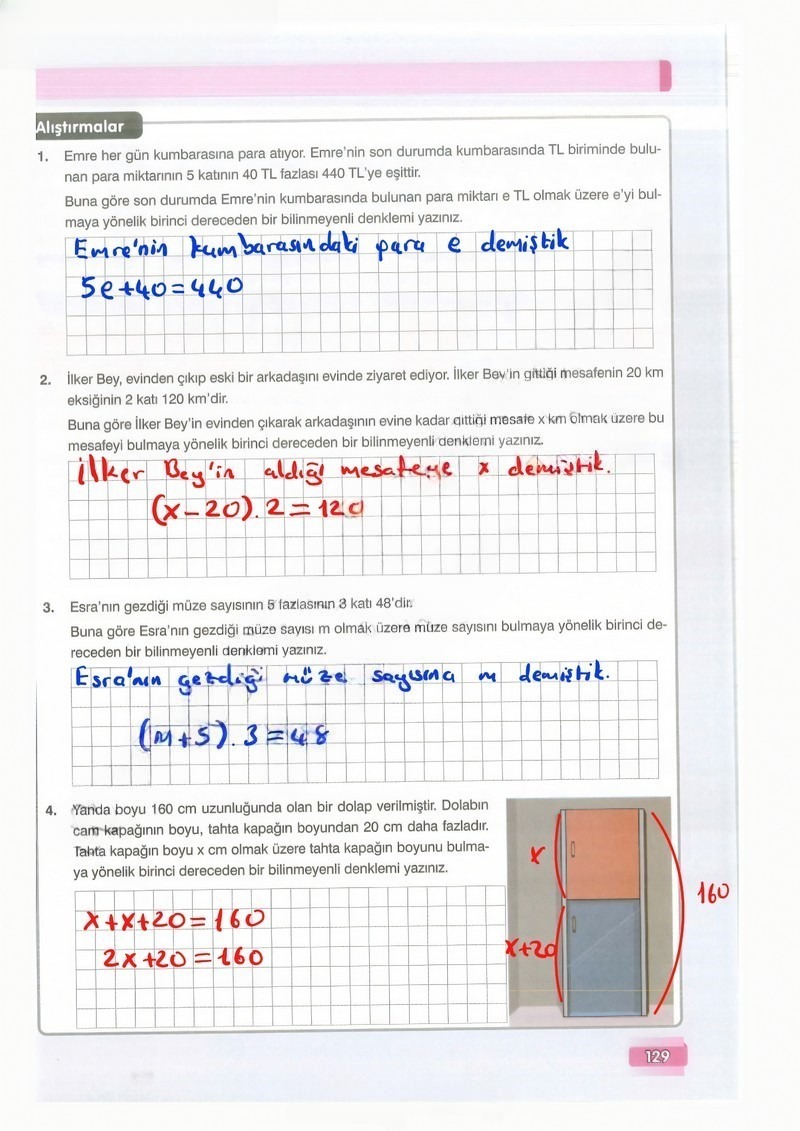 Alıştırmalar
1. Emre her gün kumbarasına para atıyor. Emre'nin son durumda kumbarasında TL biriminde bulu-
nan para miktarının 5 katının 40 TL fazlası 440 TL'ye eşittir.
Buna göre son durumda Emre'nin kumbarasında bulunan para miktarı e TL olmak üzere e'yi bul-
maya yönelik birinci dereceden bir bilinmeyenli denklemi yazınız.
Emre'nin kumbarasındaki para e demiştik
5e+40=440
2. İlker Bey, evinden çıkıp eski bir arkadaşını evinde ziyaret ediyor. İlker Bey'in gittiği mesafenin 20 km
eksiğinin 2 katı 120 km'dir.
Buna göre İlker Bey'in evinden çıkarak arkadaşının evine kadar gittiği mesafe x km olmak üzere bu
mesafeyi bulmaya yönelik birinci dereceden bir bilinmeyenli denklemi yazınız.
İlker Bey'in aldığı mesafeye x demiştik.
(x-20).2=120
3. Esra'nın gezdiği müze sayısının 5 fazlasının 3 katı 48'dir.
Buna göre Esra'nın gezdiği müze sayısı m olmak üzere müze sayısını bulmaya yönelik birinci de-
receden bir bilinmeyenli denklemi yazınız.
Esra'nın gezdiği müze sayısına m demiştik.
(m+5).3=48
4. Yanda boyu 160 cm uzunluğunda olan bir dolap verilmiştir. Dolabın
cam kapağının boyu, tahta kapağın boyundan 20 cm daha fazladır.
Tahta kapağın boyu x cm olmak üzere tahta kapağın boyunu bulma-
ya yönelik birinci dereceden bir bilinmeyenli denklemi yazınız.
x+x+20=160
2x+20=160
x
x+20
160
129